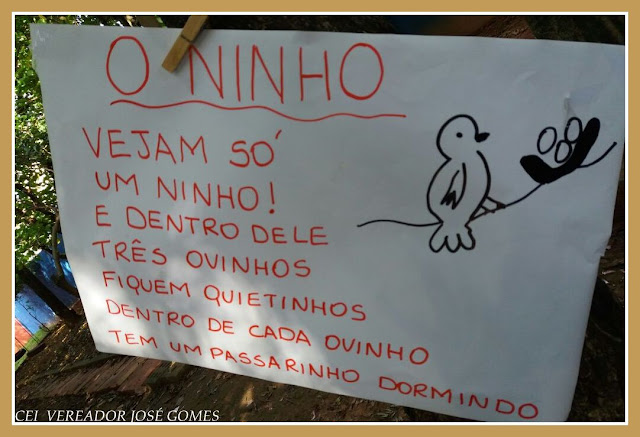 O NINHO
VEJAM SÓ
UM NINHO!
E DENTRO DELE
TRÊS OVINHOS
FIQUEM QUIETINHOS
DENTRO DE CADA OVINHO
TEM UM PASSARINHO DORMINDO
CEI VEREADOR JOSÉ GOMES